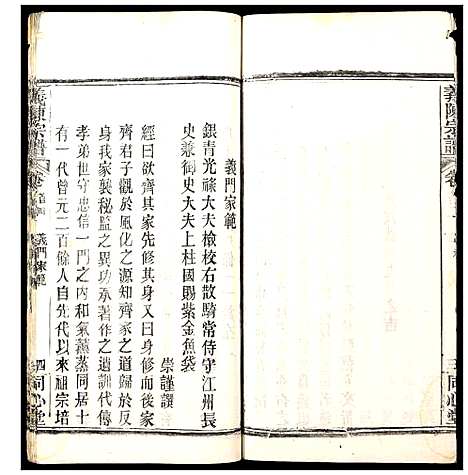 義陳宗譜
卷
同心堂
義門家範
銀青光祿大夫檢校右散騎常侍守江州長
史兼御史大夫上柱國賜紫金魚袋
崇謹譔
經曰欲齊其家先修其身又曰身修而後家
齊君子觀於風化之源知齊家之道歸於反
身我家襲秘監之異功承著作之遺訓代傳
孝弟世守忠信一門之內和氣薰蒸同居十
有一代曾元二百餘人自先代以來祖宗培
義陳宗譜
卷首
義門家範
四
同心堂